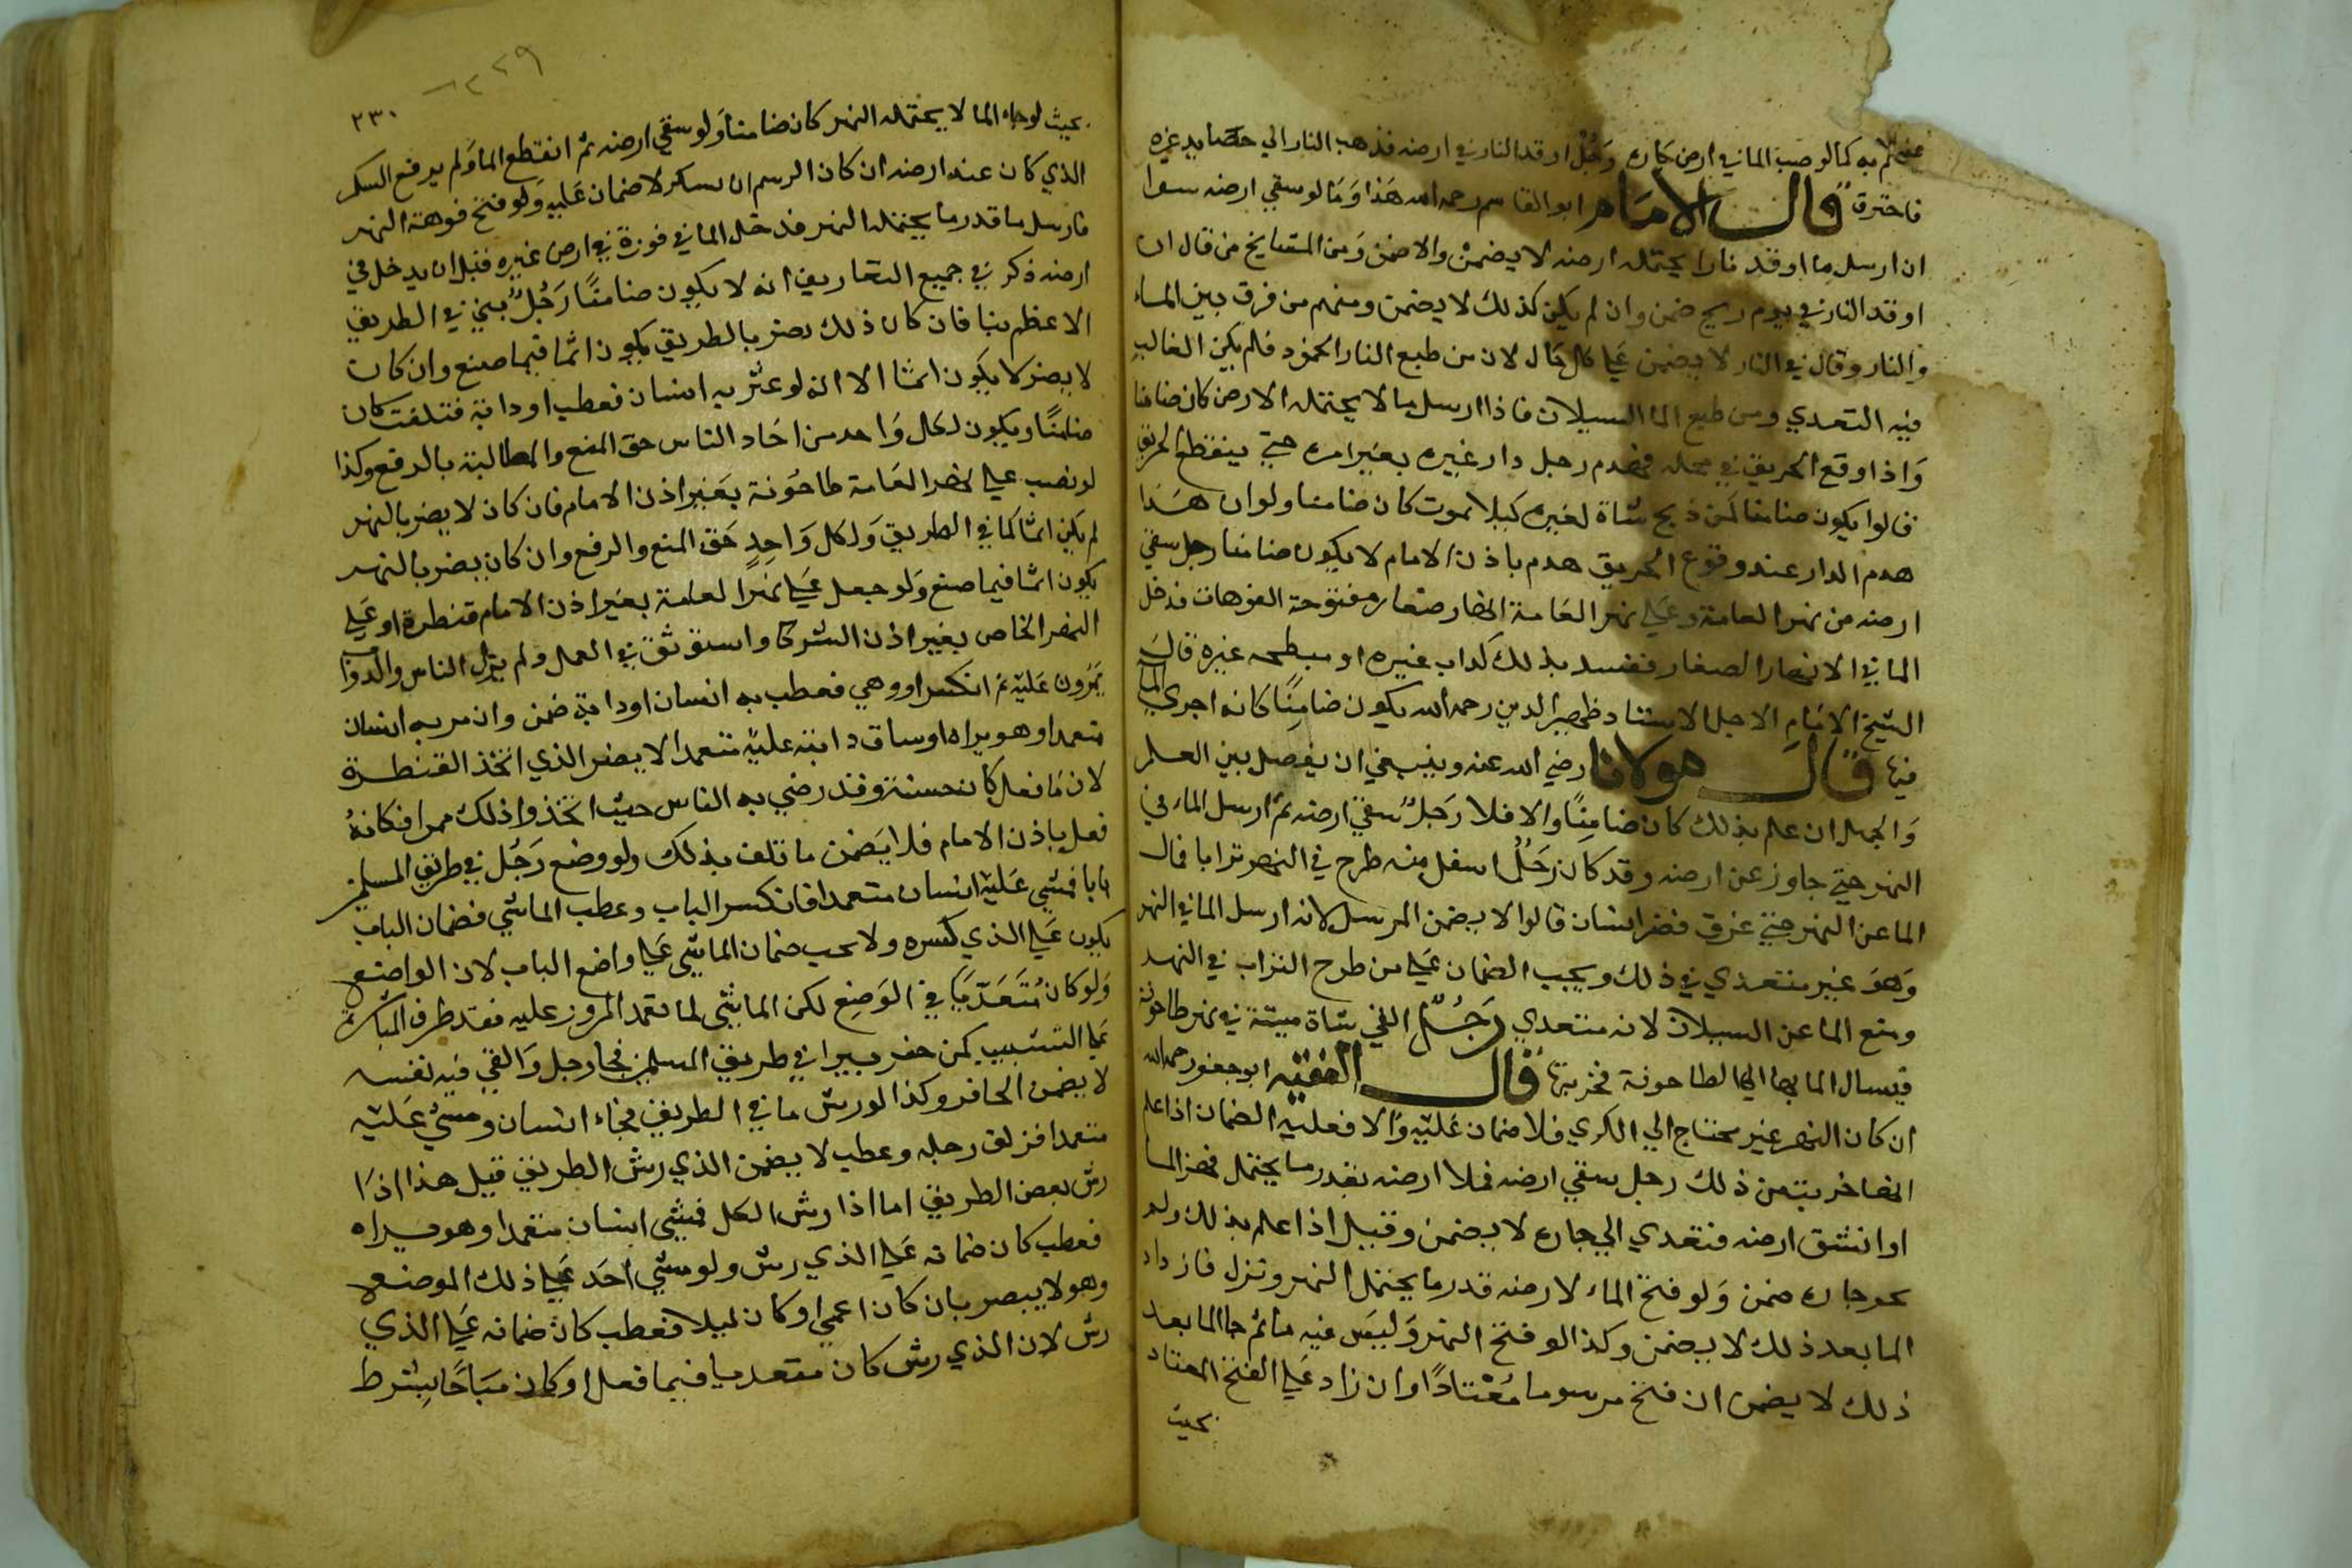 كما لو صب الماء في ارض جاره رجُل اوقد النار في ارضه فذهب النار الي حصايد غيره
فاحترق قال الامام ابو القاسم رحمه الله هذا وما لو سقي ارضه سوا
ان ارسل ما اوقد نارا يحتمله ارضه لا يضمن والا ضمن ومن المشايخ من قال ان
اوقد النار في يوم ريح ضمن وان لم يكن كذلك لا يضمن ومنهم من فرق بين الماء
والنار وقال في النار لا يضمن علي كل حال لان من طبع النار الخمود فلم يكن الغالب
فيه التعدي ومن طبع الما السيلان فاذا ارسل ما لا يحتمله الارض كان ضامنا
واذا وقع الحريق في محله فهدم رجل دار غيره بغير امره حتي ينقطع الحريق
قالوا يكون ضامنا كمن ذبح شاة لغيره كيلا تموت كان ضامنا ولو ان هذا
هدم الدار عند وقوع الحريق هدم باذن الامام لا يكون ضامنا رجل سقي
ارضه من نهر العامة وعلي نهر العامة انهار صغار مفتوحة الفوهات فدخل
الما في الانهار الصغار ففسد بذلك كداب غيره او مبطحه غيره قال
الشيخ الامام الاجل الاستاد ظهير الدين رحمه الله يكون ضامنًا كانه اجري الما
فيها قال مولانا رضي الله عنه وينبغي ان يفصل بين العلم
والجهل ان علم بذلك كان ضامنًا والا فلا رجلٌ سقي ارضه ثم ارسل الماء في
النهر حتي جاوز عن ارضه وقد كان رجُلٌ اسفل منه طرح في النهر ترابا فمال
الما عن النهر حتي غرق قصر انسان قالوا لا يضمن المرسل لانه ارسل الما في النهر
وهو غير متعدي في ذلك ويجب الضمان علي من طرح التراب في النهر
ومنع الما عن السيلان لانه متعدي رجلٌ القي شاة ميتة في نهر طاحونة
فيسال الما بها الي الطاحونة فخربتها قال الفقيه ابو جعفر رحمه الله
ان كان النهر غير محتاج الي الكري فلا ضمان عليه والا فعليه الضمان اذا علم
انها خربت من ذلك رجل سقي ارضه فملا ارضه بقدر ما يحتمل فهز الما
او انشق ارضه فتعدي الي جاره لا يضمن وقيل اذا علم بذلك ولم
جاره ضمن ولو فتح الماء لارضه قدر ما يحتمل النهر ونزل فازداد
الما بعد ذلك لا يضمن وكذا لو فتح النهر وليس فيه ما ثم جا الما بعد
ذلك لا يضمن ان فتح مرسوما مُعْتادًا وان زاد علي الفتح المعتاد
بحيث
٢٣٠
بحيث لو جاه الما لا يحتمله النهر كان ضامنا ولو سقي ارضه ثم انقطع الما ولم يرفع السكر
الذي كان عند ارضه ان كان الرسم ان يسكر لا ضمان عليه ولو فتح فوهة النهر
فارسل ما قدر ما يحتمله النهر فدخل الما في فورة في ارض غيره قبل ان يدخل في
ارضه ذكر في جميع التفاريق انه لا يكون ضامنًا رجُلٌ بني في الطريق
الاعظم بنا فان كان ذلك يضر بالطريق يكون اثما فيما صنع وان كان
لا يضر لا يكون اثما الا انه لو عثر به انسان فعطب او دابة فتلفت كان
ضامنًا ويكون لكل واحد من احاد الناس حق المنع والمطالبة بالرفع وكذا
لو نصب علي نهر العامة طاحونة بغير اذن الامام فان كان لا يضر بالنهر
لم يكن اثما كما في الطريق ولكل واحدٍ حق المنع والرفع وان كان يضر بالنهر
يكون اثما فيما صنع ولو جعل علي نهر العامة بغير اذن الامام قنطرة او علي
النهر الخاص بغير اذن الشركا واستوثق في العمل ولم يزل الناس والدواب
يمرون عليه ثم انكسر او وهي فعطب به انسان او دابة ضمن وان مر به انسان
متعمدا وهو يراه او ساق دابته عليه متعمدا لا يضمن الذي اتخذ القنطرة
لان ما فعل كان حسنة وقد رضي به الناس حيث اتخذوا ذلك ممرا فكانه
فعل باذن الامام فلا يضمن ما تلف بذلك ولو وضع رجُل في طريق المسلمين
بابا فمشي عليه انسان متعمدا فانكسر الباب وعطب الماشي فضمان الباب
يكون علي الذي كسره ولا يجب ضمان الماشي علي واضع الباب لان الواضع
ولو كان مُتَعَدّيًا في الوضع لكن الماشي لما تعمد المرور عليه فقد طرف المباشرة
علي التسبيب كمن حفر بيرا في طريق المسلمين فجا رجل والقي فيه نفسه
لا يضمن الحافر وكذا لو رش ما في الطريق فجاء انسان ومشي عليه
متعمدا فزلق رجله وعطب لا يضمن الذي رش الطريق قيل هذا اذا
رش بعض الطريق اما اذا رش الكل فمشي انسان متعمدا وهو يراه
فعطب كان ضمانه علي الذي رش ولو مشي احد علي ذلك الموضع
وهو لا يبصر بان كان اعمي او كان ليلا فعطب كان ضمانه علي الذي
رش لان الذي رش كان متعديا فيما فعل او كان مباحًا بشرط